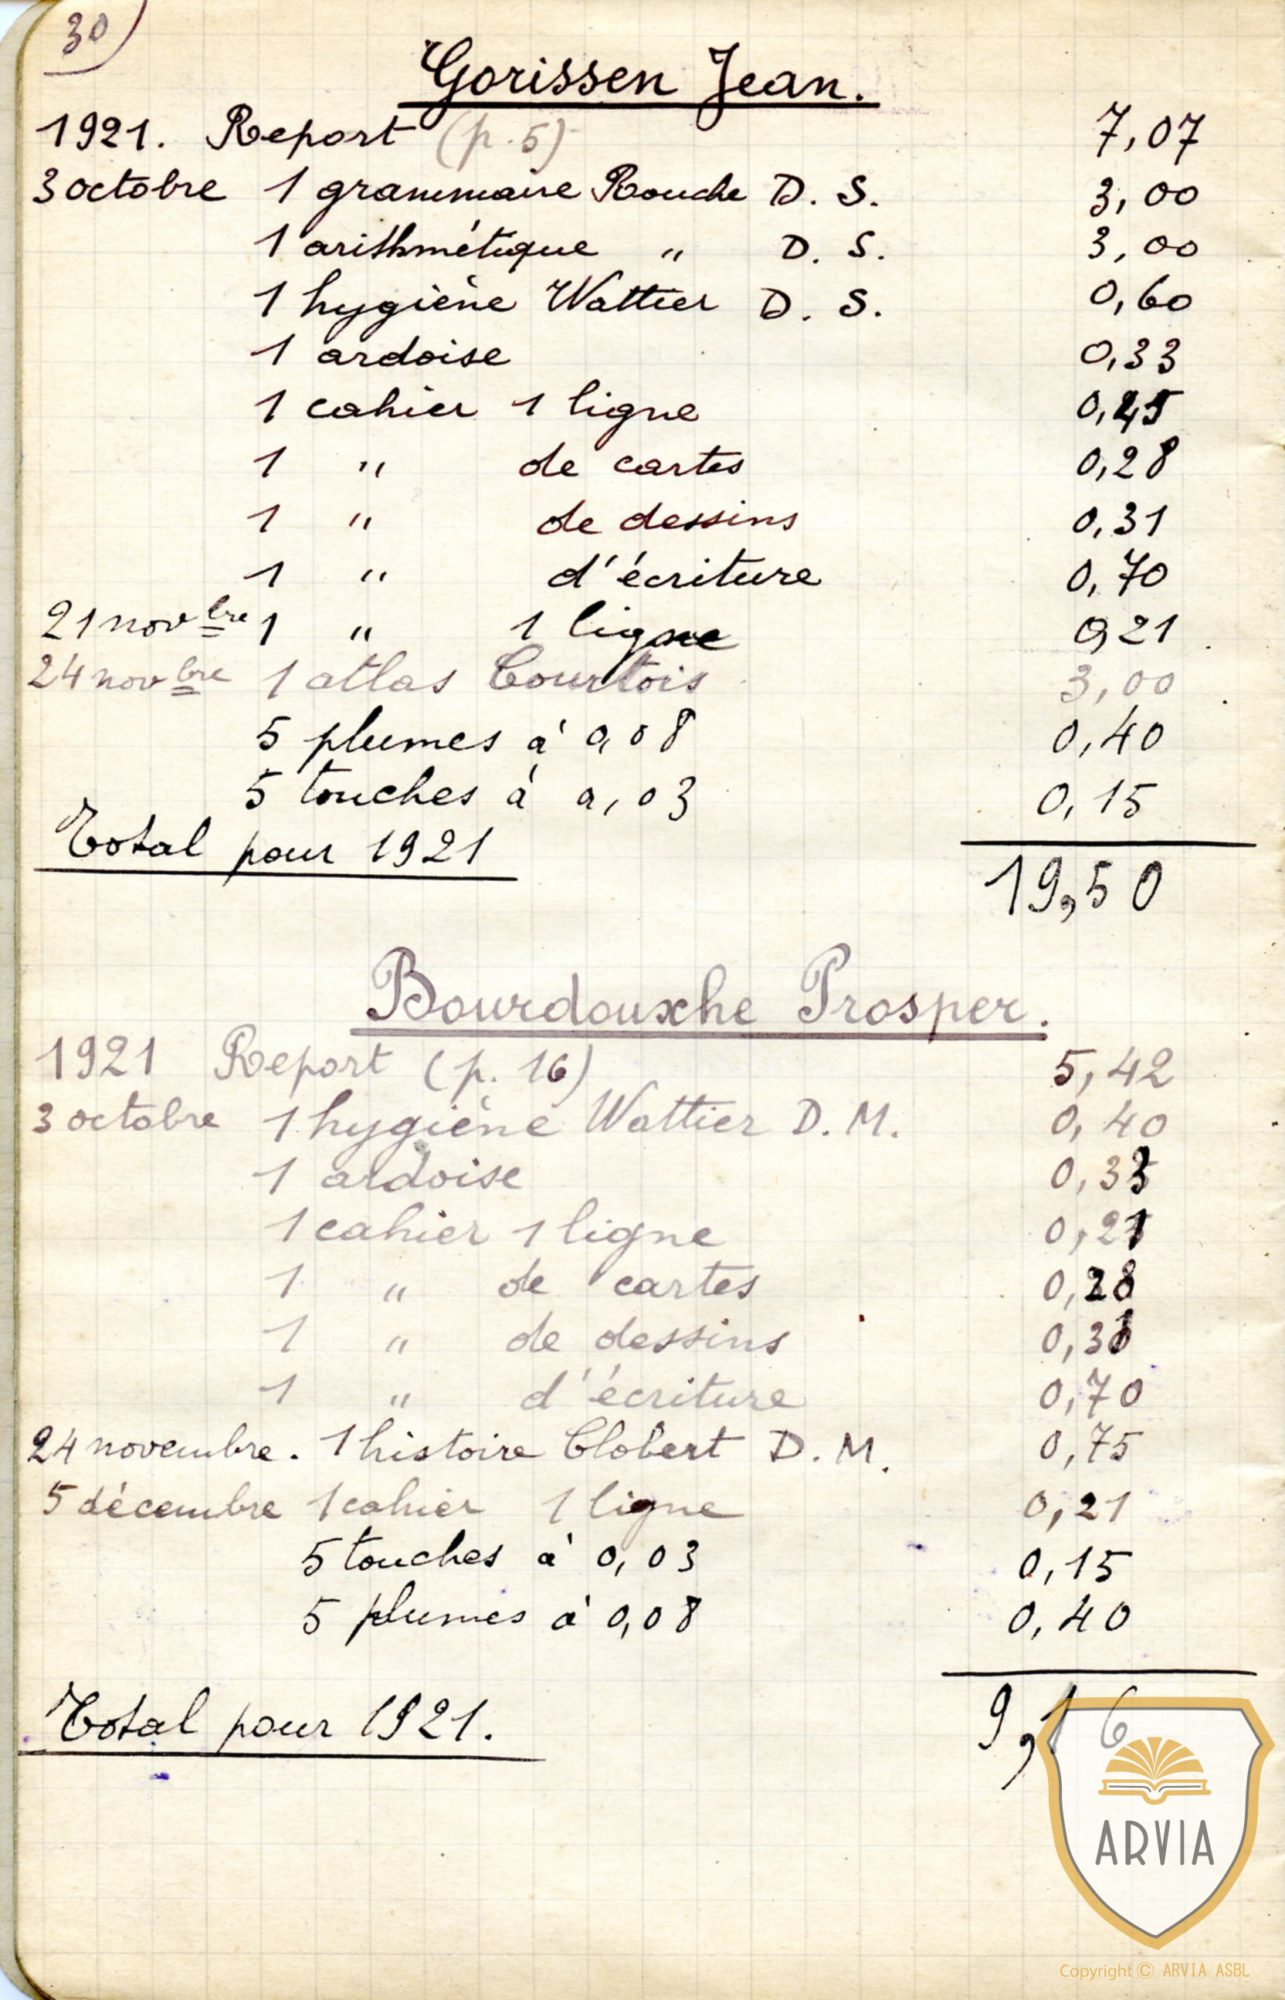 30
Gorissen Jean.
1921. Report (p.5) 7,07
3 octobre 1 grammaire Rouche D. S. 3,00
1 arithmétique " D. S. 3,00
1 hygiène Wattier D. S. 0,60
1 ardoise 0,33
1 cahier 1 ligne 0,45
1 " de cartes 0,28
1 " de dessins 0,31
1 " d'écriture 0,70
21 novbre 1 " 1 ligne 0,21
24 novbre 1 atlas Courtois 3,00
5 plumes à 0,08 0,40
5 touches à 0,03 0,15
Total pour 1921 19,50
Bourdouxhe Prosper.
1921 Report (p. 16) 5,42
3 octobre 1 hygiène Wattier D. M. 0,40
1 ardoise 0,33
1 cahier 1 ligne 0,21
1 " de cartes 0,28
1 " de dessins 0,31
1 " d'écriture 0,70
24 novembre. 1 histoire Clobert D. M. 0,75
5 décembre 1 cahier 1 ligne 0,21
5 touches à 0,03 0,15
5 plumes à 0,08 0,40
Total pour 1921. 9,16
ARVIA
Copyright © ARVIA ASBL